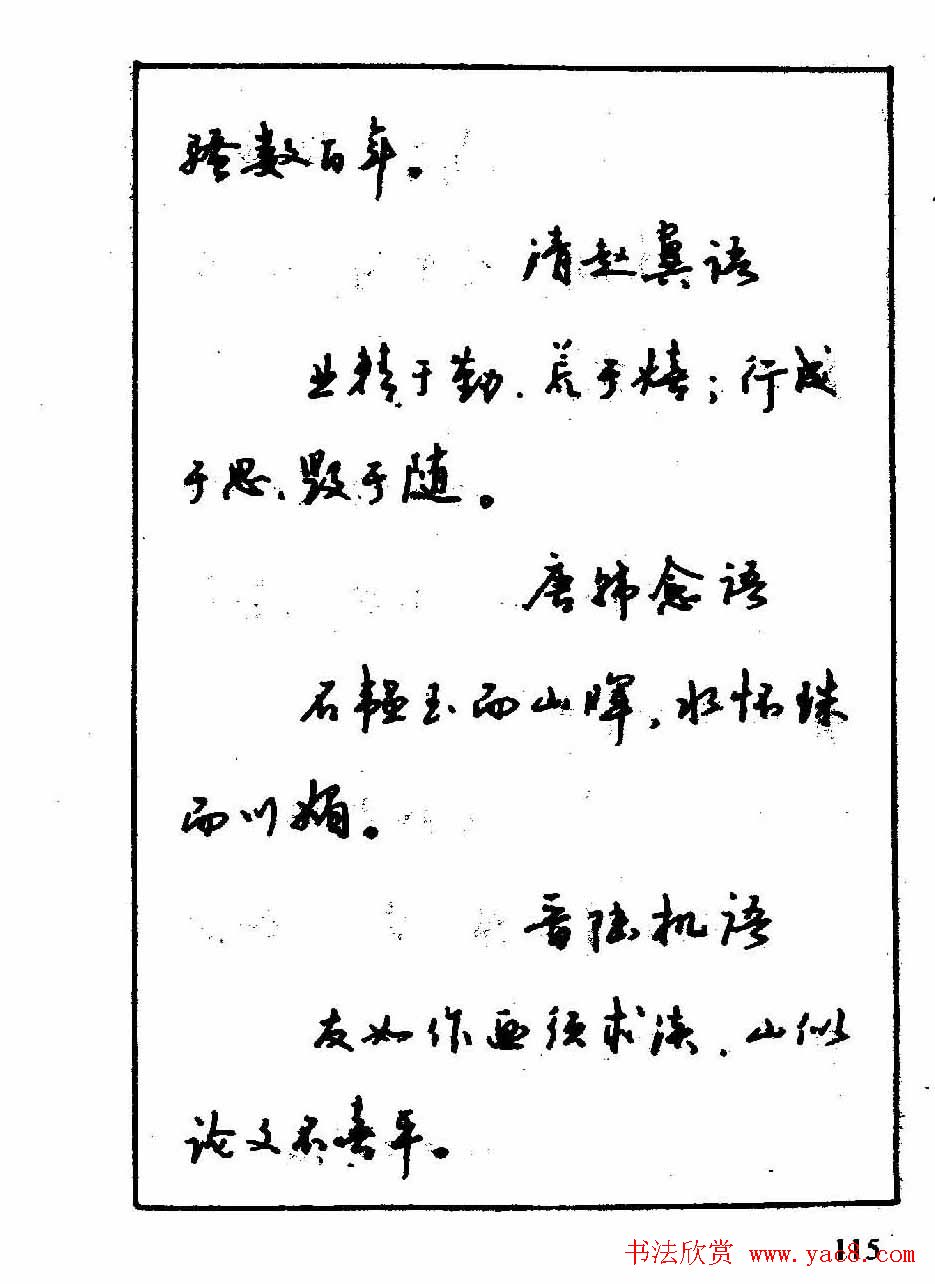 骚数百年。
清赵翼语
业精于勤，荒于嬉；行成
于思，毁于随。
唐韩愈语
石韫玉而山晖，水怀珠
而川媚。
晋陆机语
友如作画须求淡，山似
论文不喜平。
115
书法欣赏 www.yac8.com